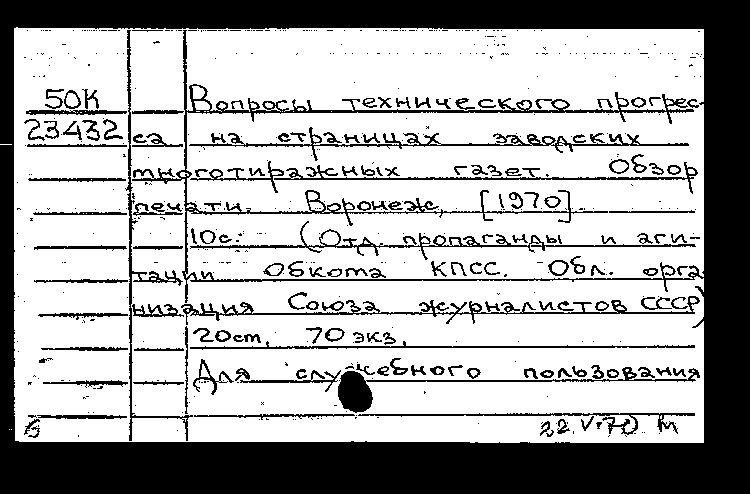 50К Вопросы технического прогрес-
23432 са на страницах заводских
многотиражных газет. Обзор
печати. Воронеж, [1970].
10с. (Отд. пропаганды и аги-
тации Обкома КПСС. Обл. орга
низация Союза журналистов СССР)
20см. 70 экз.
Для служебного пользования
б 22.V.70 м